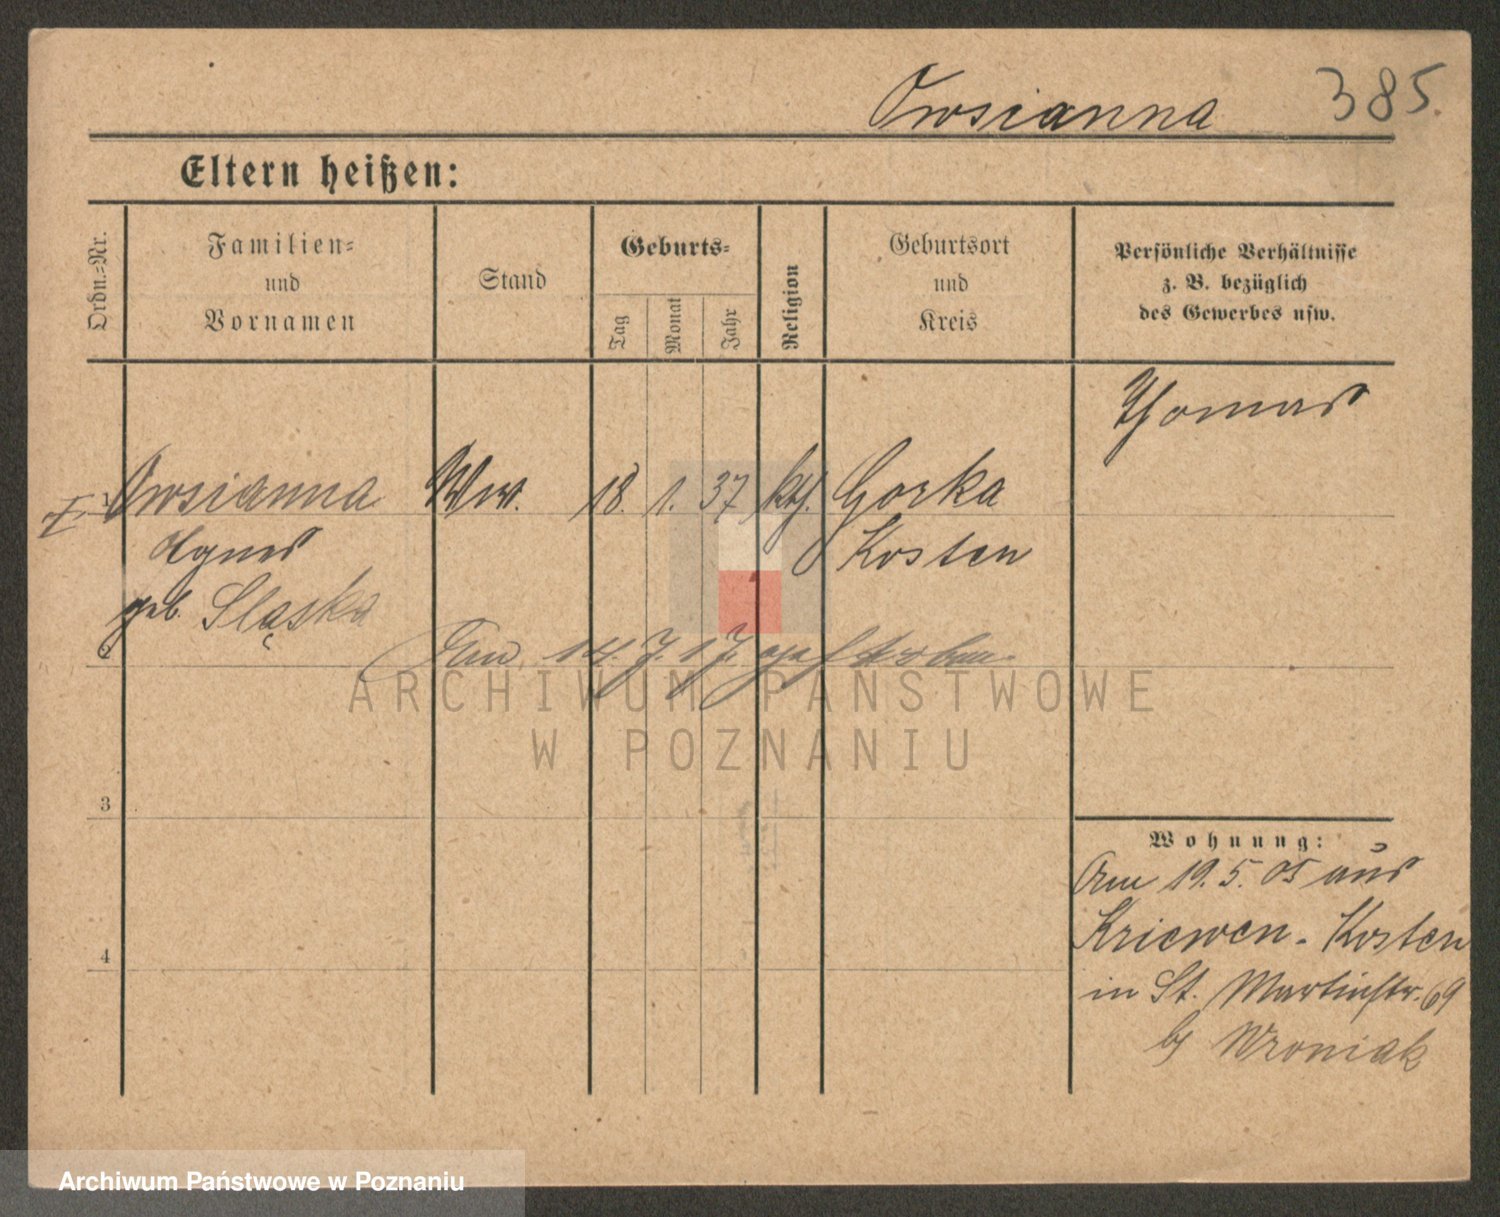 Owsianna 385.
Eltern heißen:
Ordn.=Nr.
Familien=
und
Vornamen
Stand
Geburts=
Tag
Monat
Jahr
Religion
Geburtsort
und
Kreis
Persönliche Verhältnisse
z. B. bezüglich
des Gewerbes usw.
Thomas
I. Owsianna Ww. 18. 1. 37 kth. Gorka
Agnes Kosten
geb. Sląska
Am 14. 7. 17. gestorben
ARCHIWUM PAŃSTWOWE
W POZNANIU
3
Wohnung:
Am 19. 5. 05 aus
Kriewen - Kosten
4
in St. Martinstr. 69
b/ Wroniak
Archiwum Państwowe w Poznaniu